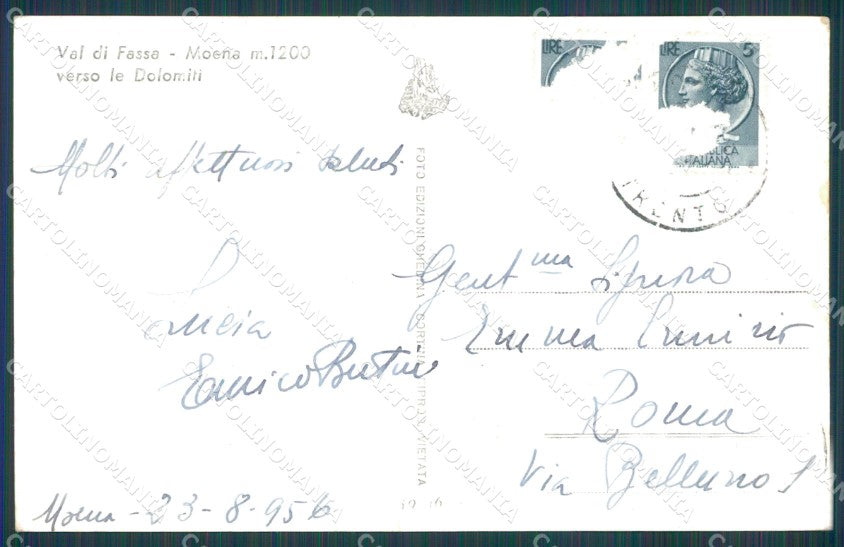 Val di Fassa - Moena m.1200
verso le Dolomiti
LIRE
LIRE 5
ITALIANA
TRENTO
Molti affettuosi saluti
Lucia
Enrico
Gent ma Signora
Emma
Roma
Via Belluno 1
Moena - 23-8-956
FOTO EDIZIONI GHEDINA - CORTINA - RIPROD. VIETATA
CARTOLINOMANIA